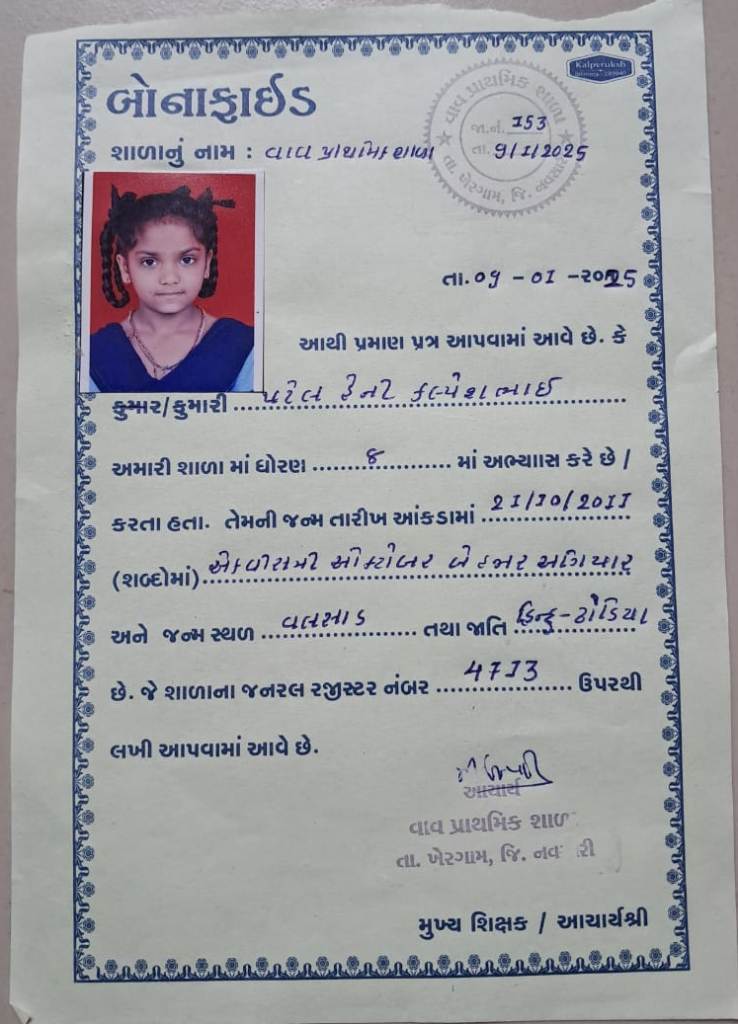 Kalpvruksh
બોનાફાઈડ
શાળાનું નામ : વાવ પ્રાથમિક શાળા
વાવ પ્રાથમિક શાળા
જા.નં. 153
તા. 9/1/2025
તા. ખેરગામ, જિ. નવસારી
તા. 09 - 01 - ૨૦૨5
આથી પ્રમાણ પત્ર આપવામાં આવે છે. કે
કુમાર/કુમારી પટેલ હેની કલ્પેશભાઈ
અમારી શાળા માં ધોરણ 8 માં અભ્યાાસ કરે છે /
કરતા હતા. તેમની જન્મ તારીખ આંકડામાં 21/10/2011
(શબ્દોમાં) એકવીસમી ઓક્ટોબર બે હજાર અગિયાર
અને જન્મ સ્થળ વલસાડ તથા જાતિ હિન્દુ - ઢોડિયા
છે. જે શાળાના જનરલ રજીસ્ટર નંબર 4713 ઉપરથી
લખી આપવામાં આવે છે.
આચાર્ય
વાવ પ્રાથમિક શાળા
તા. ખેરગામ, જિ. નવસારી
મુખ્ય શિક્ષક / આચાર્યશ્રી